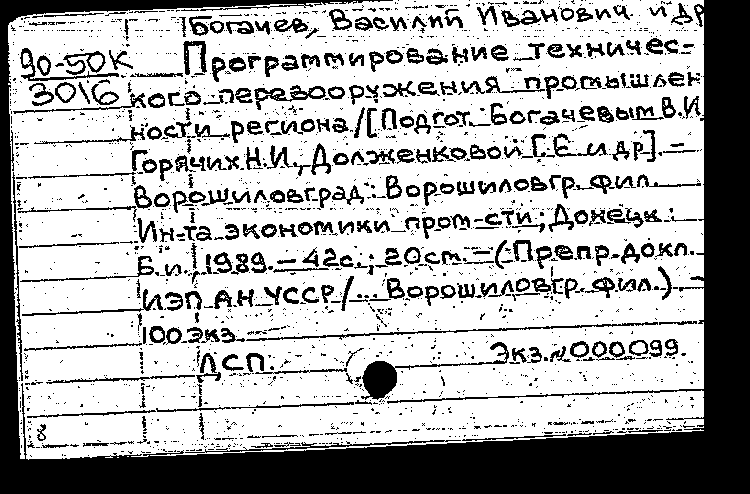 Богачев, Василий Иванович и др
90-50К
3016
Программирование техничес-
кого перевооружения промышлен
ности региона/[Подгот. Богачевым В.И
Горячих Н.И., Долженковой Г.Е и др]. –
Ворошиловград: Ворошиловгр. фил.
Ин-та экономики пром-сти; Донецк:
Б.и., 1989. – 42с.; 20см. – (Препр. докл.
ИЭП АН УССР /... Ворошиловгр. фил.). –
100 экз.
ДСП. Экз. № 000099.
8